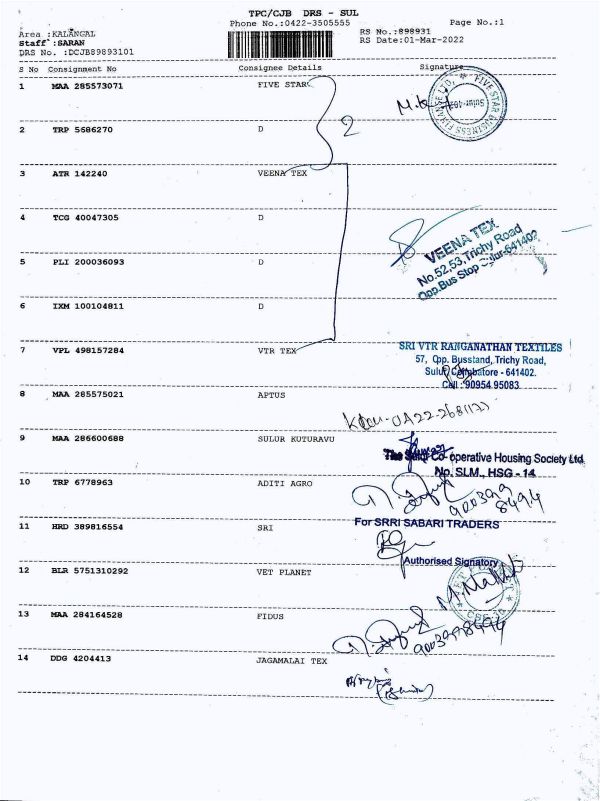 TPC/CJB DRS - SUL
Phone No.:0422-3505555
Page No.:1
Area :KALANGAL
Staff :SARAN
DRS No. :DCJB89893101
RS No.:898931
RS Date:01-Mar-2022
S No Consignment No Consignee Details Signature
1 MAA 285573071 FIVE STAR
FIVE STAR BUSINESS FINANCE LTD,
2 TRP 5686270 D 2
3 ATR 142240 VEENA TEX
4 TCG 40047305 D
VEENA TEX
No.52,53, Trichy Road
Opp.Bus Stop Sulur-641402
5 PLI 200036093 D
6 IXM 100104811 D
7 VPL 498157284 VTR TEX
SRI VTR RANGANATHAN TEXTILES
57, Opp. Busstand, Trichy Road,
Sulur, Coimbatore - 641402.
Cell : 90954 95083
8 MAA 285575021 APTUS
9 MAA 286600688 SULUR KUTURAVU
The Sulur Co-operative Housing Society Ltd
No. SLM., HSG - 14
10 TRP 6778963 ADITI AGRO
9003998494
11 HRD 389816554 SRI
For SRRI SABARI TRADERS
Authorised Signatory
12 BLR 5751310292 VET PLANET
13 MAA 284164528 FIDUS
9003998494
14 DDG 4204413 JAGAMALAI TEX